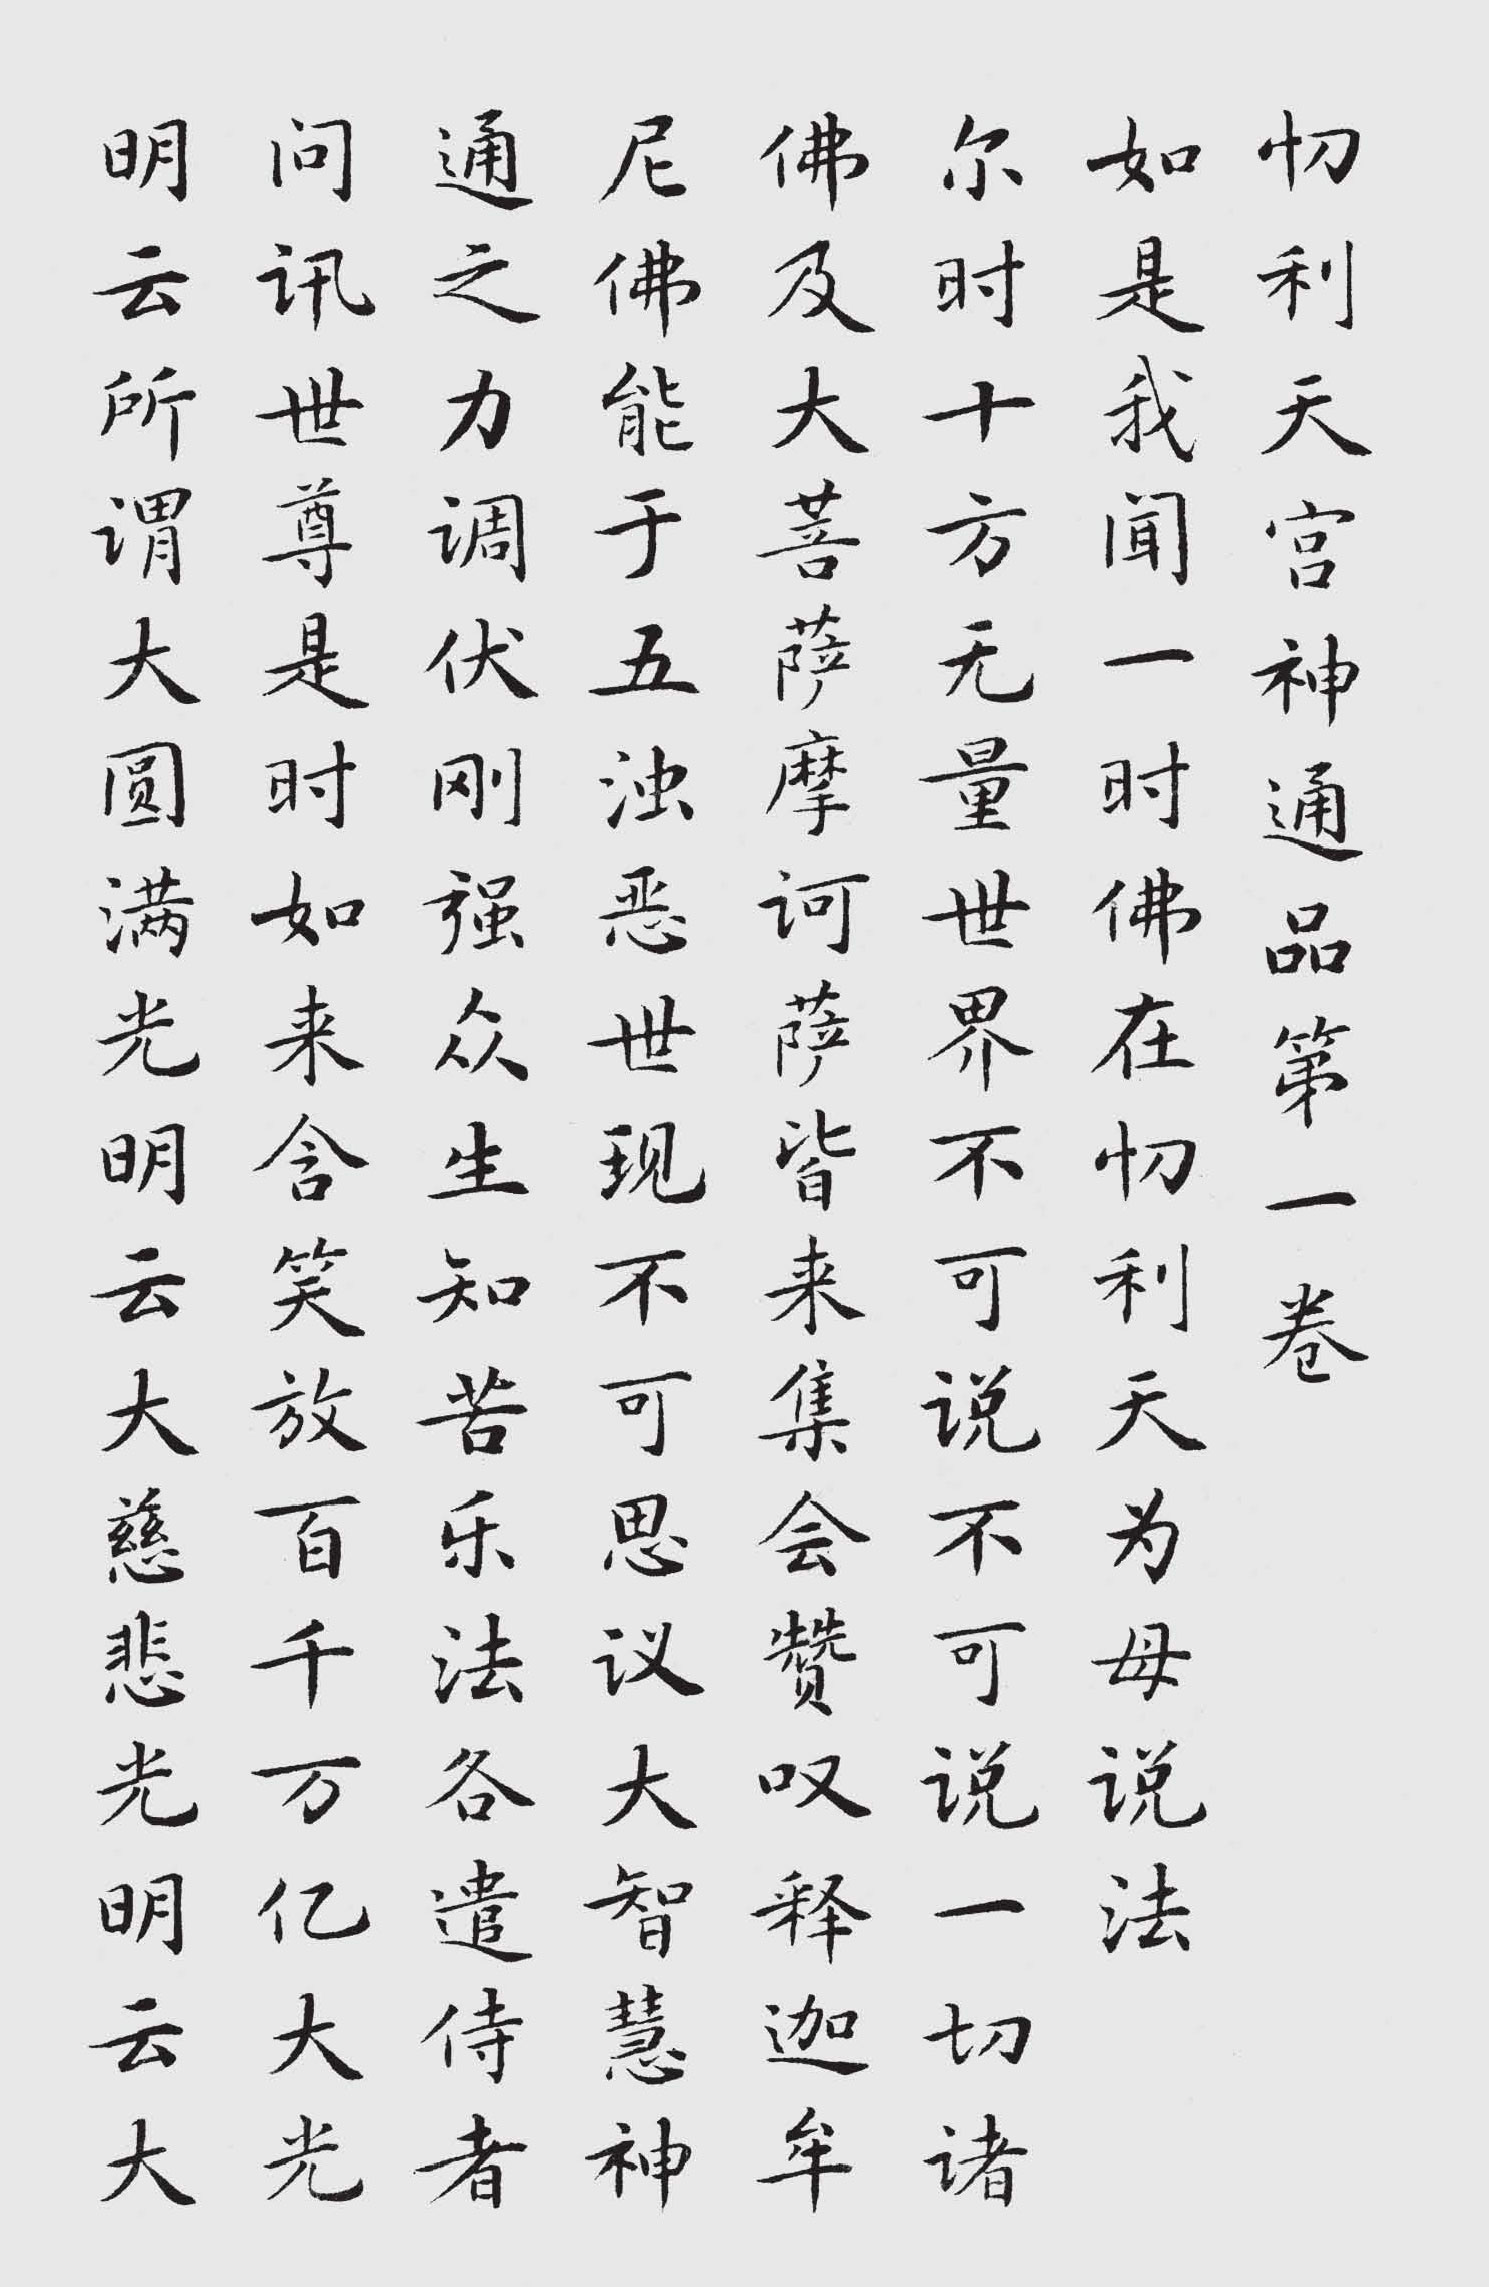 忉利天宫神通品第一卷
如是我闻一时佛在忉利天为母说法
尔时十方无量世界不可说不可说一切诸
佛及大菩萨摩诃萨皆来集会赞叹释迦牟
尼佛能于五浊恶世现不可思议大智慧神
通之力调伏刚强众生知苦乐法各遣侍者
问讯世尊是时如来含笑放百千万亿大光
明云所谓大圆满光明云大慈悲光明云大